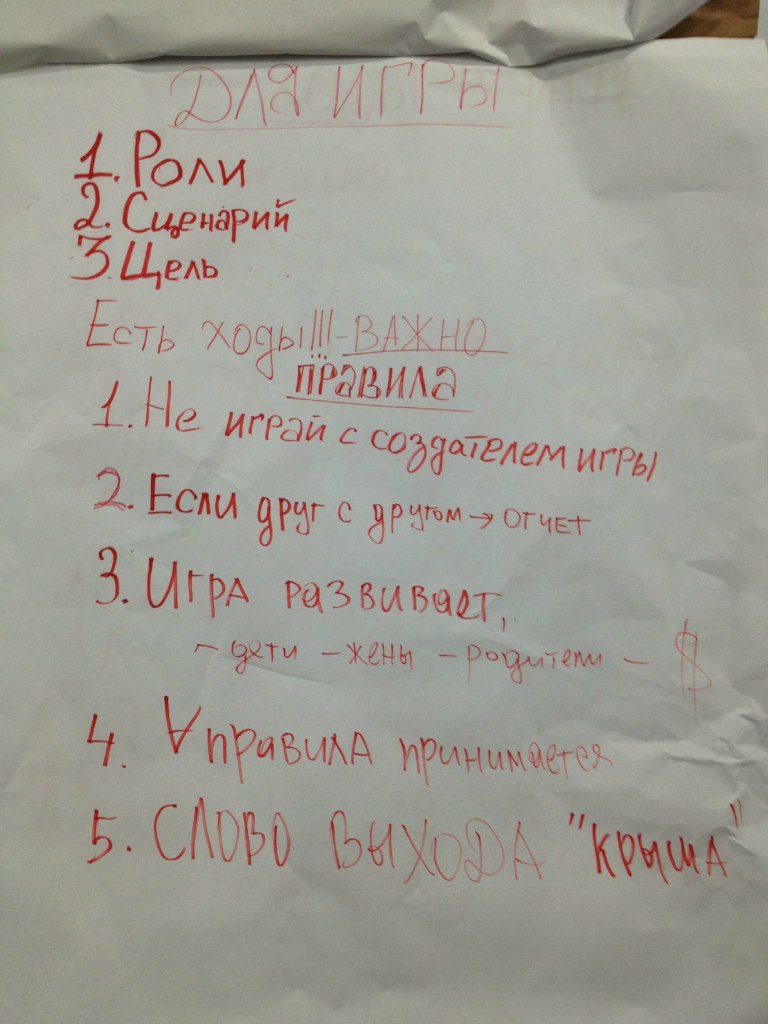 ДЛЯ ИГРЫ
1. Роли
2. Сценарий
3. Цель
Есть ходы!!! - ВАЖНО
ПРАВИЛА
1. Не играй с создателем игры
2. Если друг с другом → ОТЧЕТ
3. Игра развивает,
- дети - жены - родители - $
4. ∀ правила принимается
5. СЛОВО ВЫХОДА "КРЫША"